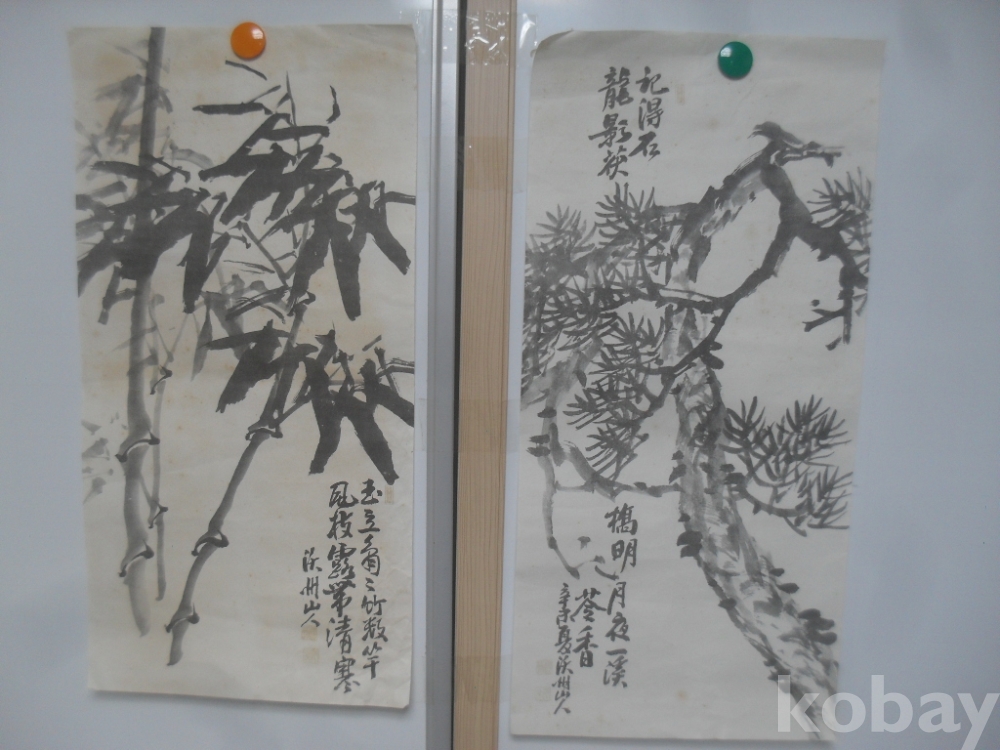 玉立〻竹数竿
風枝露帶清寒
沃州山人
記得石
龍影茯
橋明月夜一溪
苓香
辛未夏沃州山人
kobay